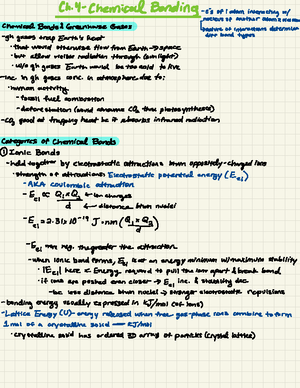 Ch.4 - Chemical Bonding
- e⁻s of 1 atom interacting w/
nucleus of another atom =
nature of interactions determine
diff bond types
Chemical Bonds & Greenhouse Gases
- gh gases trap Earth's heat
• that would otherwise flow from Earth → space
• but allow visible radiation through (sunlight)
• w/o gh gases Earth would be too cold to live
- inc. in gh gas conc. in atmosphere due to:
• human activity
• fossil fuel combustion
• deforestation (would consume CO₂ thru photosynthesis)
- CO₂ good at trapping heat bc it absorbs infrared radiation
Categories of Chemical Bonds
① Ionic Bonds
- held together by electrostatic attractions btwn oppositely-charged ions
• strength of attraction: Electrostatic potential energy (Eel)
- AKA coulombic attraction
- Eel ∝ Q₁ × Q₂ / d ← ion charges
← distance btwn nuclei
- Eel = 2.31 x 10⁻¹⁹ J·nm (Q₁ × Q₂ / d)
- Eel = neg. the greater the attraction
- when ionic bond forms, Eel is at an energy minimum w/ maximum stability
• |Eel| here = Energy required to pull the ions apart & break bond
• if ions are pushed even closer → Eel inc. & stability dec.
- bc less distance btwn nuclei → stronger electrostatic repulsions
- bonding energy usually expressed in kJ/mol (of ions)
- Lattice Energy (U) - energy released when free gas-phase ions combine to form
1 mol of a crystalline solid — kJ/mol
• crystalline solid has ordered 3D array of particles (crystal lattice)